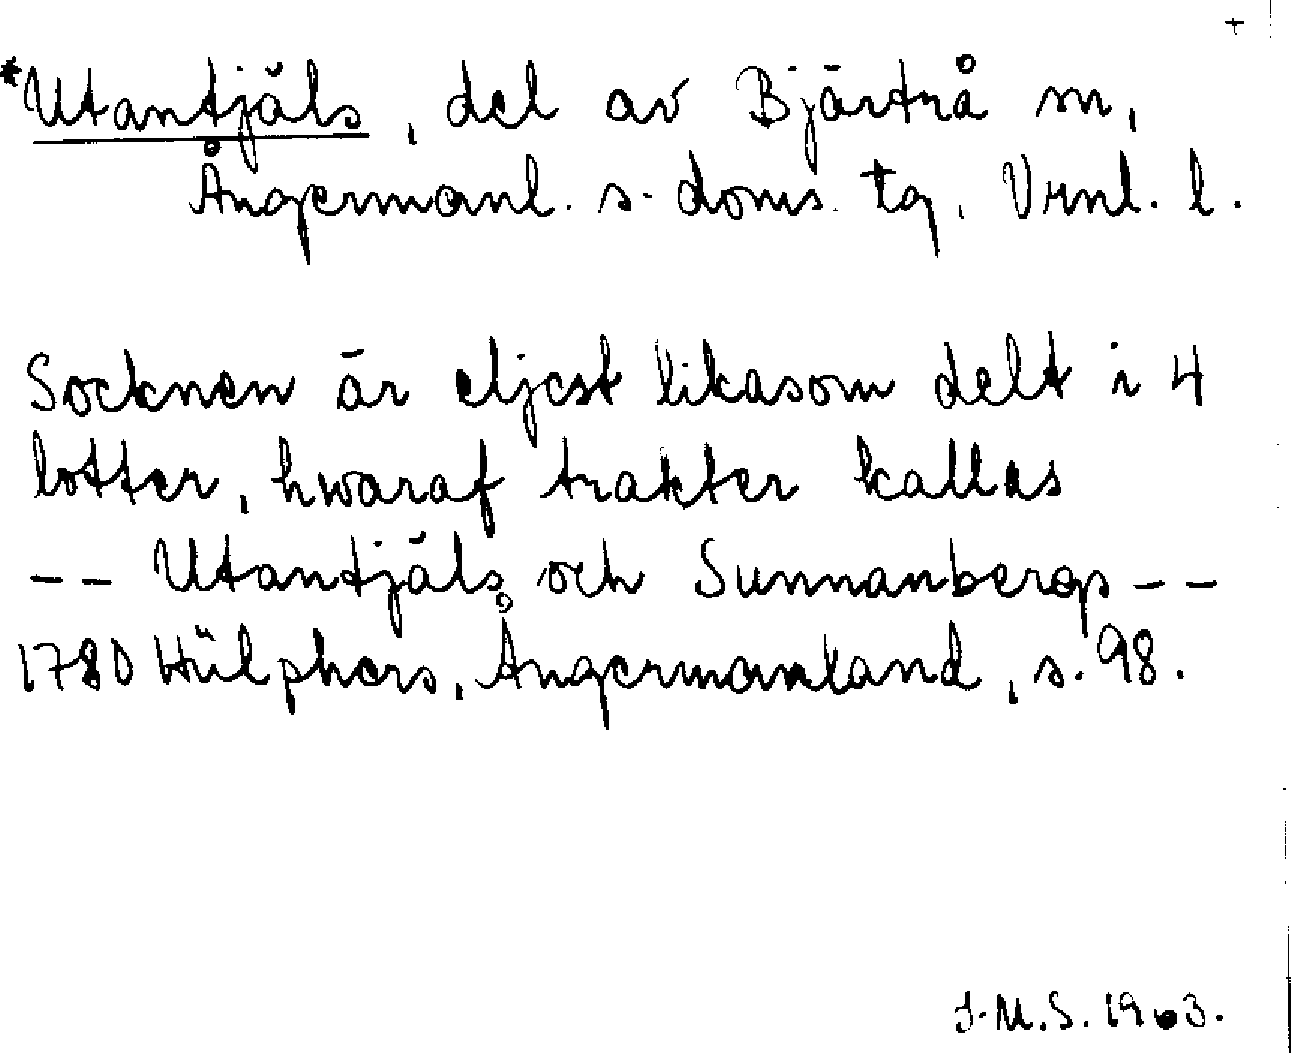 +
*Utantjäls, del av Bjärtrå sn,
Ångermanl. s. doms. tg, Vrnl. l.
Socknen är eljest likasom delt i 4
lotter, hwaraf trakter kallas
-- Utantjäls och Sunnanbergs --
1780 Hülphers, Ångermanland, s. 98.
J.M.S. 1963.